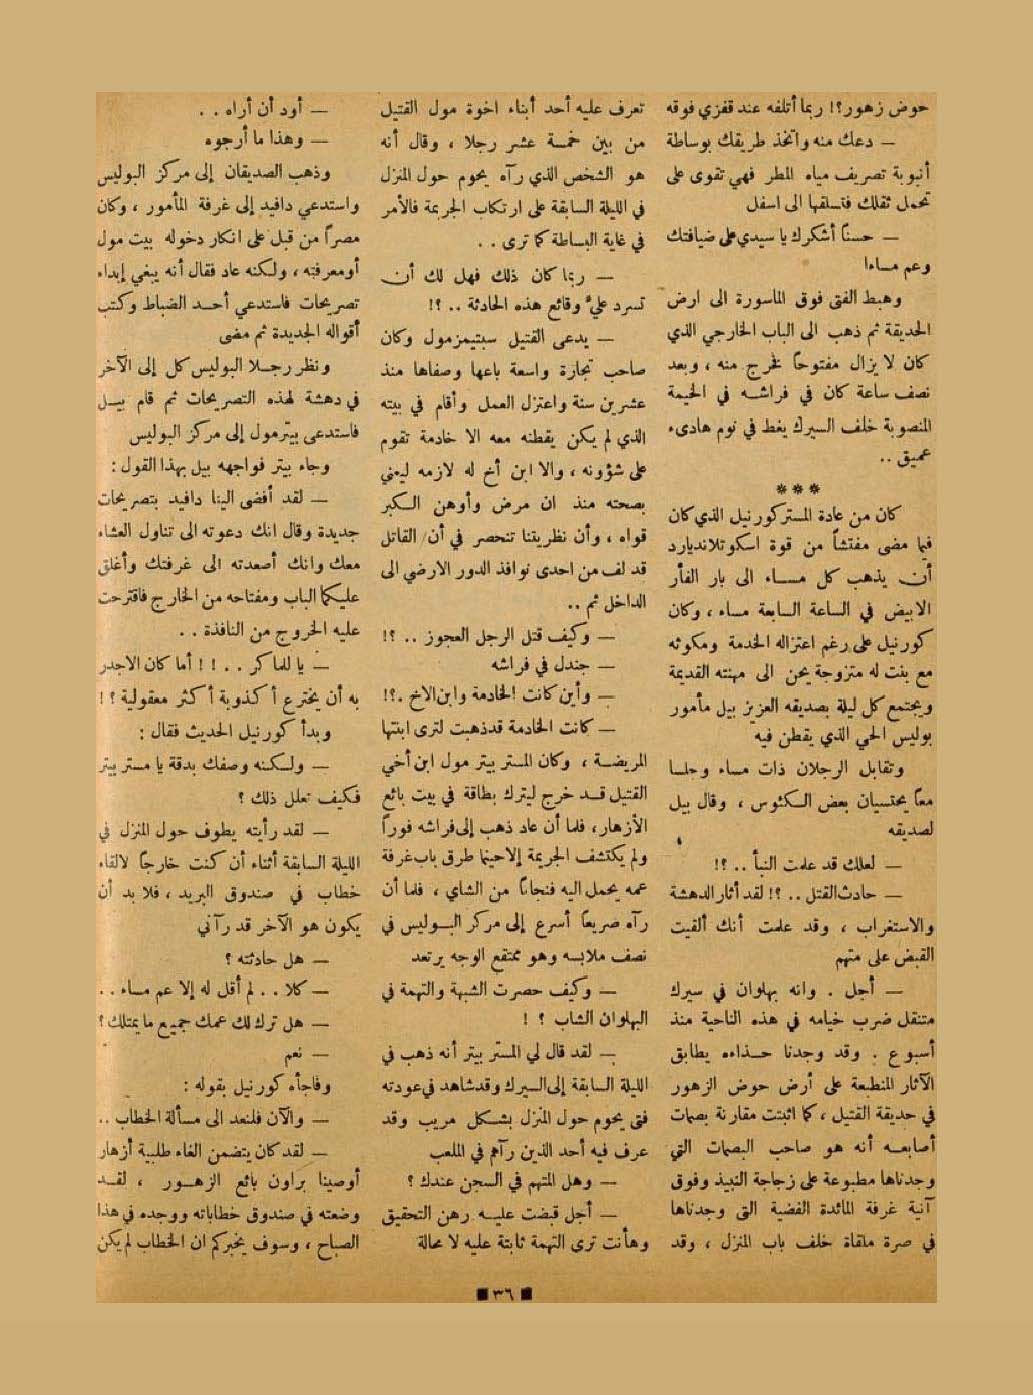 حوض زهور؟! ربما أتلفه عند قفزي فوقه
— دعك منه واتخذ طريقك بوساطة
أنبوبة تصريف مياه المطر فهي تقوى على
تحمل ثقلك فتسلقها الى اسفل
— حسناً أشكرك يا سيدي على ضيافتك
وعم مساءا
وهبط الفتى فوق الماسورة الى ارض
الحديقة ثم ذهب الى الباب الخارجي الذي
كان لا يزال مفتوحاً فخرج منه ، وبعد
نصف ساعة كان في فراشه في الخيمة
المنصوبة خلف السيرك يغط في نوم هادىء
عميق ..
***
كان من عادة المستر كورنيل الذي كان
فيما مضى مفتشاً من قوة اسكوتلانديارد
أن يذهب كل مساء الى بار الفأر
الابيض في الساعة السابعة مساء ، وكان
كورنيل على رغم اعتزاله الخدمة ومكوثه
مع بنت له متزوجة يحن الى مهنته القديمة
ويجتمع كل ليلة بصديقه العزيز بيل مأمور
بوليس الحي الذي يقطن فيه
وتقابل الرجلان ذات مساء وجلسا
معاً يحتسيان بعض الكئوس ، وقال بيل
لصديقه
— لعلك قد علمت النبأ .. ؟!
— حادث القتل .. ؟! لقد أثار الدهشة
والاستغراب ، وقد علمت أنك ألقيت
القبض على متهم
— أجل . وانه بهلوان في سيرك
متنقل ضرب خيامه في هذه الناحية منذ
أسبوع . وقد وجدنا حذاءه يطابق
الآثار المنطبعة على أرض حوض الزهور
في حديقة القتيل ، كما اثبتت مقارنة بصمات
أصابعه أنه هو صاحب البصمات التي
وجدناها مطبوعة على زجاجة النبيذ وفوق
آنية غرفة المائدة الفضية التى وجدناها
في صرة ملقاة خلف باب المنزل ، وقد
تعرف عليه أحد أبناء اخوة مول القتيل
من بين خمسة عشر رجلا ، وقال أنه
هو الشخص الذي رآه يحوم حول المنزل
في الليلة السابقة على ارتكاب الجريمة فالأمر
في غاية البساطة كما ترى ..
— ربما كان ذلك فهل لك أن
تسرد عليّ وقائع هذه الحادثة .. ؟!
— يدعى القتيل سبتيمز مول وكان
صاحب تجارة واسعة باعها وصفاها منذ
عشرين سنة واعتزل العمل وأقام في بيته
الذي لم يكن يقطنه معه الا خادمة تقوم
على شؤونه ، والا ابن أخ له لازمه ليعنى
بصحته منذ ان مرض وأوهن الكبر
قواه ، وأن نظريتنا تنحصر في أن القاتل
قد لف من احدى نوافذ الدور الارضي الى
الداخل ثم ..
— وكيف قتل الرجل العجوز .. ؟!
— جندل في فراشه
— وأين كانت الخادمة وابن الاخ .؟!
— كانت الخادمة قد ذهبت لترى ابنتها
المريضة ، وكان المستر بيتر مول ابن أخي
القتيل قد خرج ليترك بطاقة في بيت بائع
الأزهار، فلما أن عاد ذهب إلى فراشه فوراً
ولم يكتشف الجريمة إلا حينما طرق باب غرفة
عمه يحمل اليه فنجاناً من الشاي ، فلما أن
رآه صريعاً أسرع إلى مركز البوليس في
نصف ملابسه وهو ممتقع الوجه يرتعد
— وكيف حصرت الشبهة والتهمة في
البهلوان الشاب ؟ !
— لقد قال لي المستر بيتر أنه ذهب في
الليلة السابقة إلى السيرك وقد شاهد في عودته
فتى يحوم حول المنزل بشكل مريب وقد
عرف فيه أحد الذين رآهم في الملعب
— وهل المتهم في السجن عندك ؟
— أجل قبضت عليه رهن التحقيق
وهأنت ترى التهمة ثابتة عليه لا محالة
— أود أن أراه ..
— وهذا ما أرجوه
وذهب الصديقان إلى مركز البوليس
واستدعي دافيد إلى غرفة المأمور ، وكان
مصراً من قبل على انكار دخوله بيت مول
أو معرفته ، ولكنه عاد فقال أنه يبغي إبداء
تصريحات فاستدعي أحد الضباط وكتب
أقواله الجديدة ثم مضى
ونظر رجلا البوليس كل إلى الآخر
في دهشة لهذه التصريحات ثم قام بيل
فاستدعى بيتر مول إلى مركز البوليس
وجاء بيتر فواجهه بيل بهذا القول :
— لقد أفضى الينا دافيد بتصريحات
جديدة وقال انك دعوته الى تناول العشاء
معك وانك أصعدته الى غرفتك وأغلق
عليكما الباب ومفتاحه من الخارج فاقترحت
عليه الخروج من النافذة ..
— يا للماكر .. !! أما كان الاجدر
به أن يخترع أكذوبة أكثر معقولية ؟ !
وبدأ كورنيل الحديث فقال :
— ولكنه وصفك بدقة يا مستر بيتر
فكيف تعلل ذلك ؟
— لقد رأيته يطوف حول المنزل في
الليلة السابقة أثناء أن كنت خارجاً لالقاء
خطاب في صندوق البريد ، فلا بد أن
يكون هو الآخر قد رآني
— هل حادثته ؟
— كلا .. لم أقل له إلا عم مساء ..
— هل ترك لك عمك جميع ما يمتلك ؟
— نعم
وفاجأه كورنيل بقوله :
— والآن فلنعد الى مسألة الخطاب ..
— لقد كان يتضمن الغاء طلبية أزهار
أوصينا براون بائع الزهور ، لقد
وضعته في صندوق خطاباته ووجده في هذا
الصباح ، وسوف يخبركم ان الخطاب لم يكن
٣٦